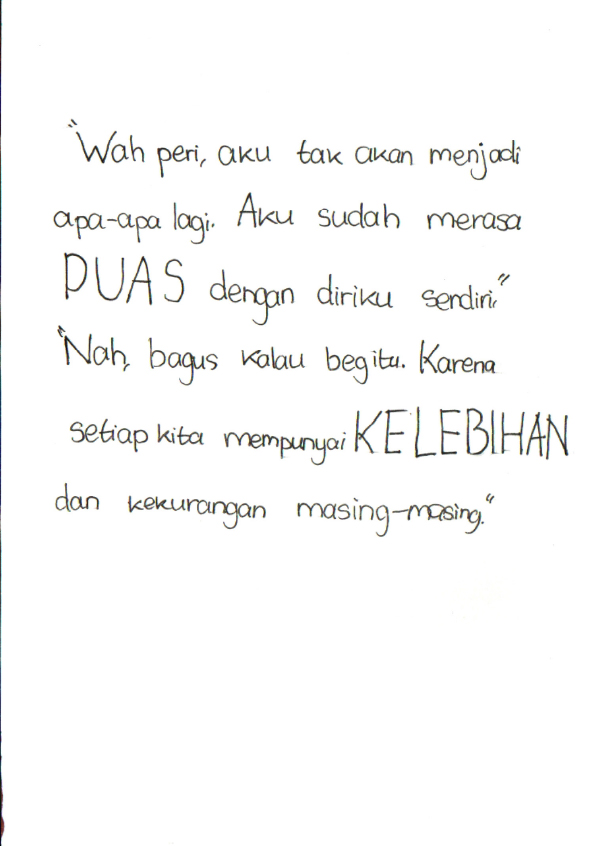 "Wah peri, aku tak akan menjadi
apa-apa lagi. Aku sudah merasa
PUAS dengan diriku sendiri."
"Nah, bagus kalau begitu. Karena
setiap kita mempunyai KELEBIHAN
dan kekurangan masing-masing."